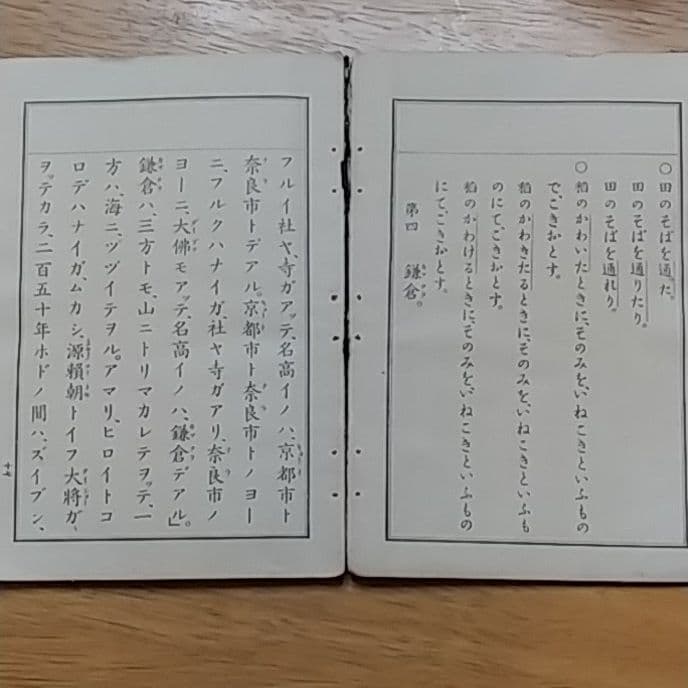 〇田のそばを通った。
田のそばを通りたり。
田のそばを通れり。
〇稻のかわいたときに、そのみを、いねこきといふもの
で、こきおとす。
稻のかわきたるときに、そのみを、いねこきといふも
のにてこきおとす。
稻のかわけるときに、そのみを、いねこきといふもの
にてこきおとす。
第四 鎌倉。
フルイ社ヤ、寺ガアッテ、名高イノハ、京都市ト
奈良市トデアル。京都市ト奈良市トノヨー
ニ、フルクハナイガ、社ヤ寺ガアリ、奈良市ノ
ヨーニ、大佛モアッテ、名高イノハ、鎌倉デアル」。
鎌倉ハ、三方トモ、山ニトリマカレテヲッテ、一
方ハ、海ニ、ツヅイテヲル。アマリ、ヒロイトコ
ロデハナイガ、ムカシ、源賴朝トイフ大將ガ、
ヲッテカラ、二百五十年ホドノ間ハ、ズイブン、
十七